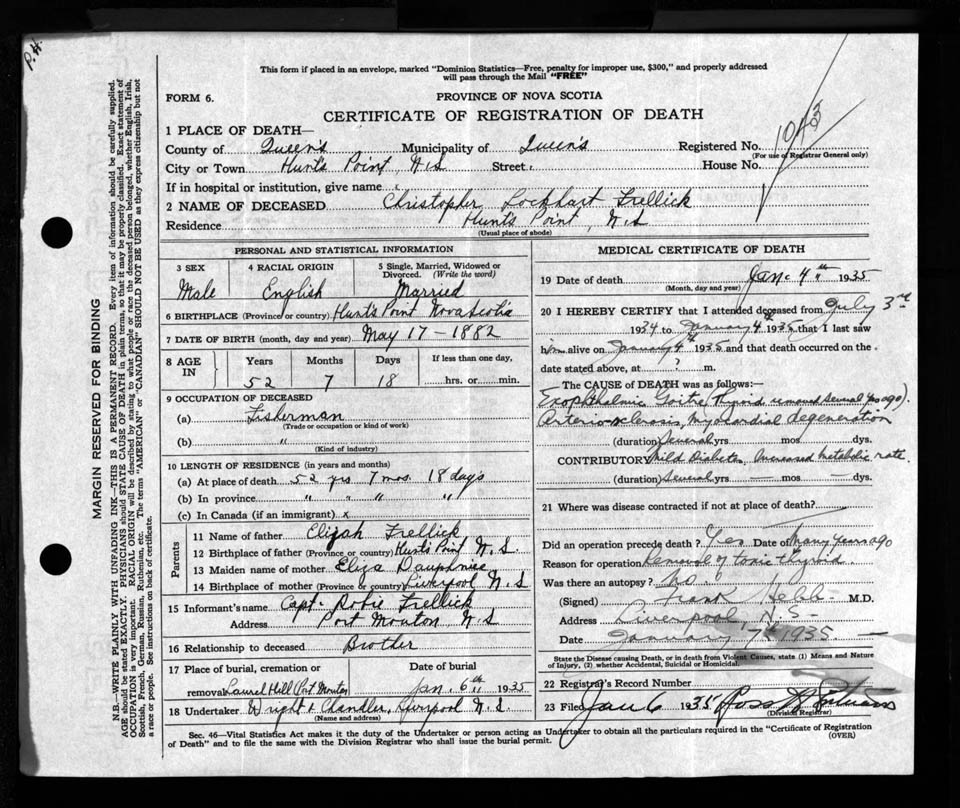 P.H.
This form if placed in an envelope, marked "Dominion Statistics—Free, penalty for improper use, $300," and properly addressed
will pass through the Mail "FREE"
FORM 6.
PROVINCE OF NOVA SCOTIA
CERTIFICATE OF REGISTRATION OF DEATH
1 PLACE OF DEATH—
County of Queen's Municipality of Queen's Registered No. 1043
(For use of Registrar General only)
City or Town Hunts Point, N.S Street. House No.
If in hospital or institution, give name
2 NAME OF DECEASED Christopher Lockhart Frellick
Residence Hunts Point, N.S
(Usual place of abode)
PERSONAL AND STATISTICAL INFORMATION
3 SEX 4 RACIAL ORIGIN 5 Single, Married, Widowed or
Divorced. (Write the word)
Male English Married
6 BIRTHPLACE (Province or country) Hunts Point Nova Scotia
7 DATE OF BIRTH (month, day and year) May 17-1882
8 AGE IN Years Months Days If less than one day,
52 7 18 hrs. or min.
9 OCCUPATION OF DECEASED
(a) Fisherman
(Trade or occupation or kind of work)
(b) "
(Kind of industry)
10 LENGTH OF RESIDENCE (in years and months)
(a) At place of death 52 yrs 7 mos. 18 days
(b) In province " " " "
(c) In Canada (if an immigrant) x
Parents
11 Name of father Elijah Frellick
12 Birthplace of father (Province or country) Hunts Point N.S.
13 Maiden name of mother Eliza Dauphinee
14 Birthplace of mother (Province or country) Liverpool N.S
15 Informant's name Capt. Robie Frellick
Address Port Mouton, N.S
16 Relationship to deceased Brother
17 Place of burial, cremation or Date of burial
removal Laurel Hill Port Mouton Jan. 6th 1935
18 Undertaker Wright & Chandler, Liverpool N.S.
(Name and address)
MEDICAL CERTIFICATE OF DEATH
19 Date of death Jan. 4th 1935
(Month, day and year)
20 I HEREBY CERTIFY that I attended deceased from July 3rd
1934 to January 4th 1935 that I last saw
him alive on January 4th 1935 and that death occurred on the
date stated above, at ? m.
The CAUSE of DEATH was as follows:—
Exophthalmic Goitre (Thyroid removed several yrs ago)
Arteriosclerosis, Myocardial degeneration
(duration) Several yrs mos dys.
CONTRIBUTORY Mild Diabetes, Increased metabolic rate.
(duration) Several yrs — mos — dys.
21 Where was disease contracted if not at place of death?
Did an operation precede death? Yes Date of Many years ago
Reason for operation Removal of toxic thyroid
Was there an autopsy? No
(Signed) Frank M.D.
Address Liverpool, N.S
Date January 7th 1935 —
State the Disease causing Death, or in death from Violent Causes, state (1) Means and Nature
of Injury, (2) whether Accidental, Suicidal or Homicidal.
22 Registrar's Record Number
23 Filed Jan 6 1935 Ross
(Division Registrar)
Sec. 46—Vital Statistics Act makes it the duty of the Undertaker or person acting as Undertaker to obtain all the particulars required in the "Certificate of Registration
of Death" and to file the same with the Division Registrar who shall issue the burial permit. (OVER)
MARGIN RESERVED FOR BINDING
N.B.—WRITE PLAINLY WITH UNFADING INK—THIS IS A PERMANENT RECORD. Every item of information should be carefully supplied.
AGE should be stated EXACTLY. PHYSICIANS should STATE CAUSE OF DEATH in plain terms, so that it may be properly classified. Exact statement of
OCCUPATION is very important. RACIAL ORIGIN will be described by stating to what people or race the deceased person belonged, whether English, Irish,
Scottish, French, German, Russian, Ruthenian, etc. The terms "AMERICAN" or "CANADIAN" SHOULD NOT BE USED as they express citizenship but not
a race or people. See instructions on back of certificate.